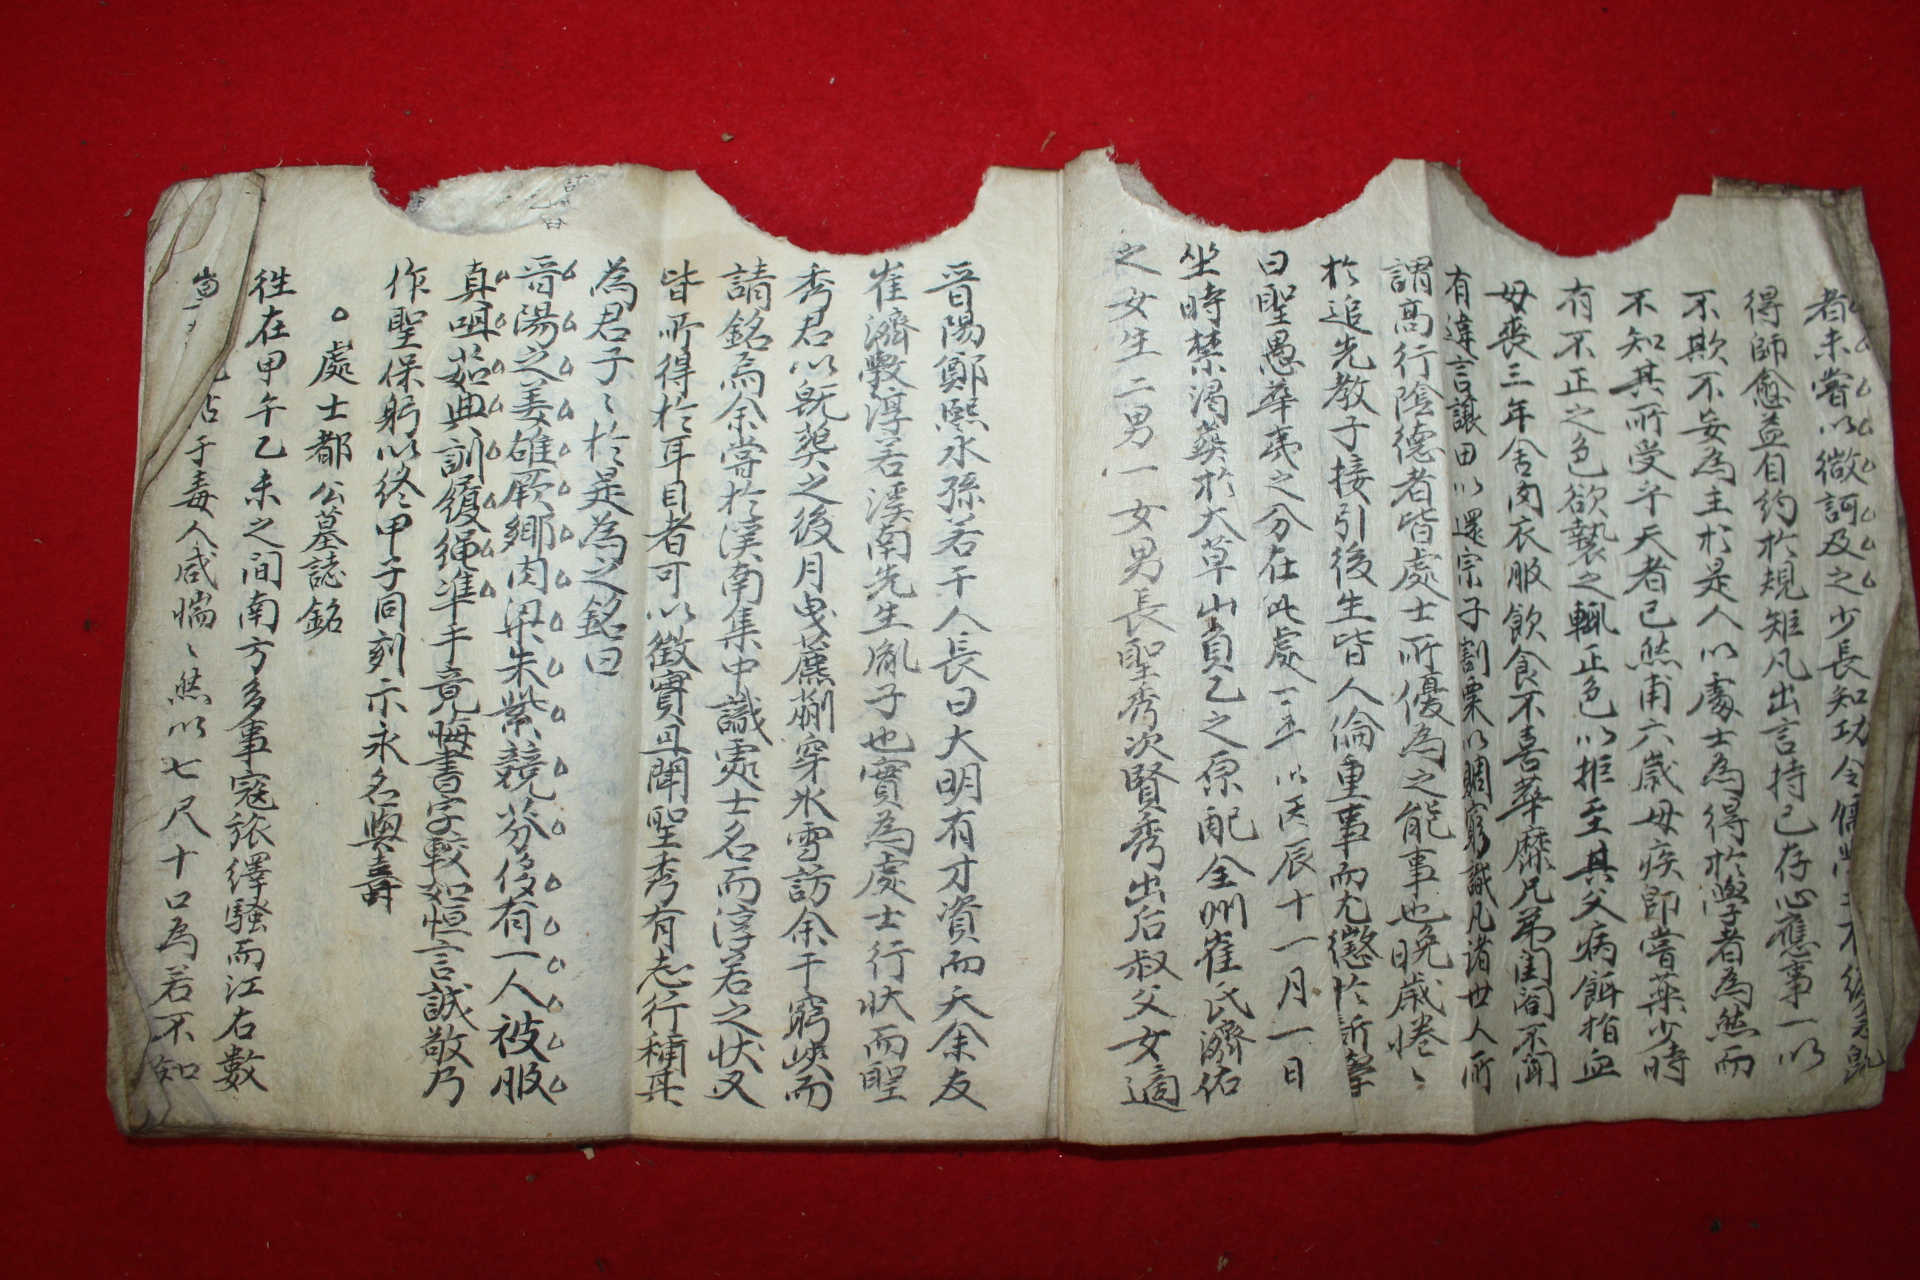 者未嘗以微訶及之少長知功令儒
得師愈益自約於規矩凡出言持己存心應事一以
不欺不妄為主於是人以處士為得於學者為然而
不知其所受乎天者已然甫六歲母疾即嘗藥少時
有不正之色欲褻之輒正色以拒至其父病餌指血
母喪三年舍肉衣服飲食不喜華靡兄弟閨閤不聞
有違言讓田以還宗子割粟以賙窮諴凡諸世人所
謂高行陰德者皆處士所優為之能事也晚歲惓〻
於追先教子接引後生皆人倫重事而尤懲於新學
曰聖愚華夷之分在此處一五以丙辰十一月一日
坐時禁渴葬於大草山負乙之原配全州崔氏濟佑
之女生二男一女男長聖秀次賢秀出后叔父女適
晋陽鄭熙永孫若干人長曰大明有才資而夭余友
崔濟斆淳若溪南先生胤子也實為處士行狀而聖
秀君以既葬之後月曳藨蒯穿氷雪訪余于窮峽而
請銘焉余嘗於溪南集中識處士名而淳若之狀又
皆所得於耳目者可以徵實且聞聖秀有志行稱其
為君子〻於是為之銘曰
晋陽之美雄厥鄉肉梁朱紫競芬侈有一人被服
真咀茹典訓履繩準手竟晦書字較如恒言誠敬乃
作聖保躬以終甲子同刻示永名與壽
處士都公墓誌銘
往在甲午乙未之间南方多事寇旅繹騷而江右數
于毒人咸惴〻然以七尺十口為若不知